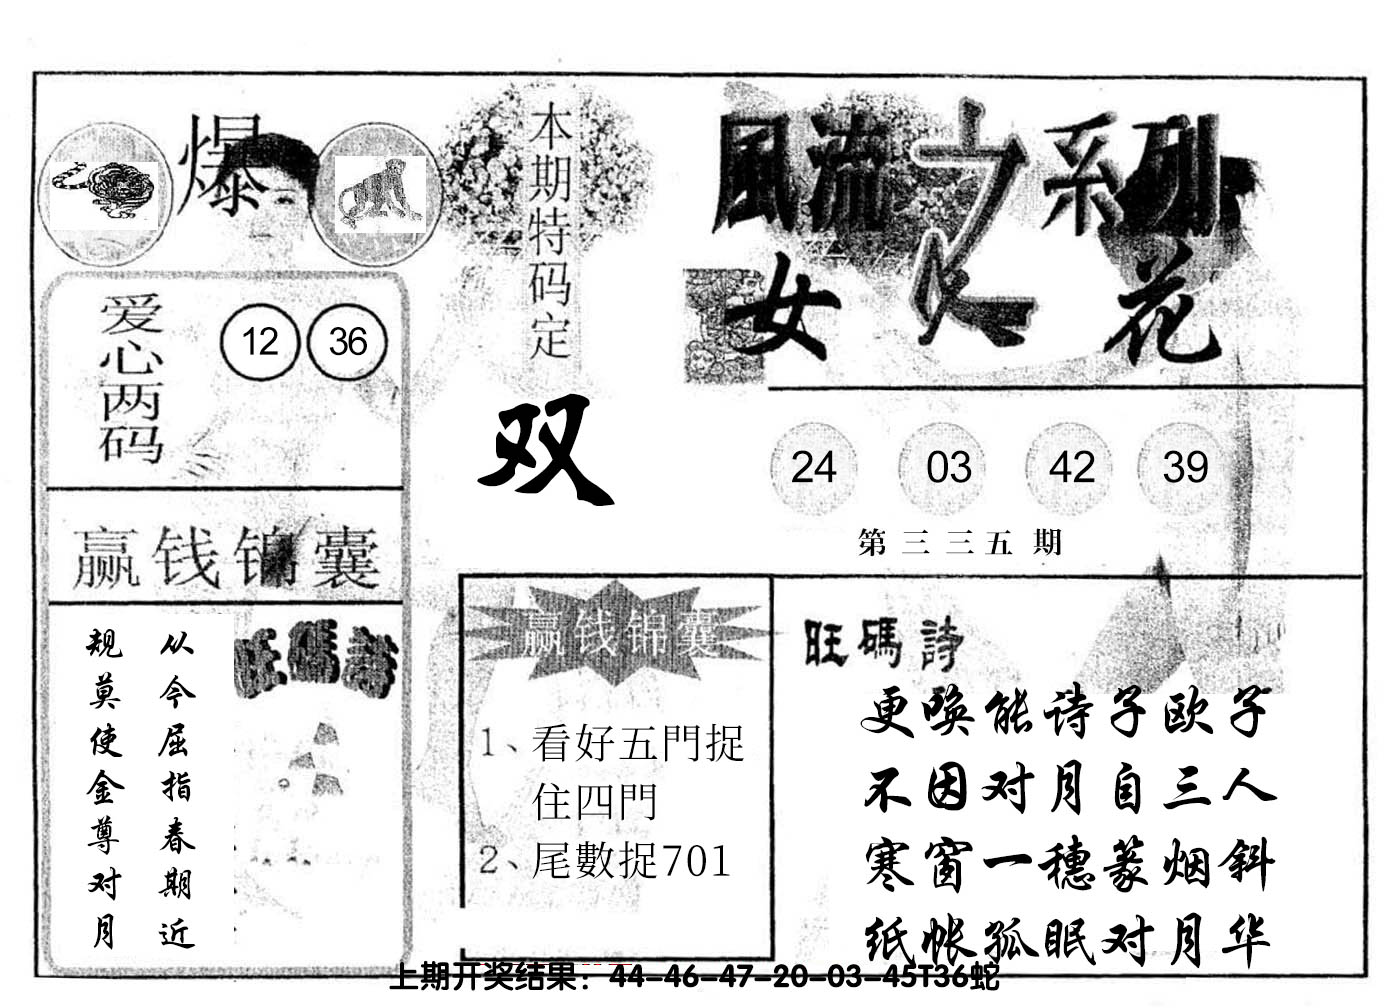 爆
本期特码定
双
風流之系列
女人花
爱心两码
12 36
24 03 42 39
第三三五期
赢钱锦囊
从今屈指春期近
规莫使金尊对月
旺碼詩
赢钱锦囊
1、看好五門捉
住四門
2、尾數捉701
旺碼詩
更唤能诗子欧子
不因对月自三人
寒窗一穗篆烟斜
纸帐孤眠对月华
上期开奖结果：44-46-47-20-03-45T36蛇